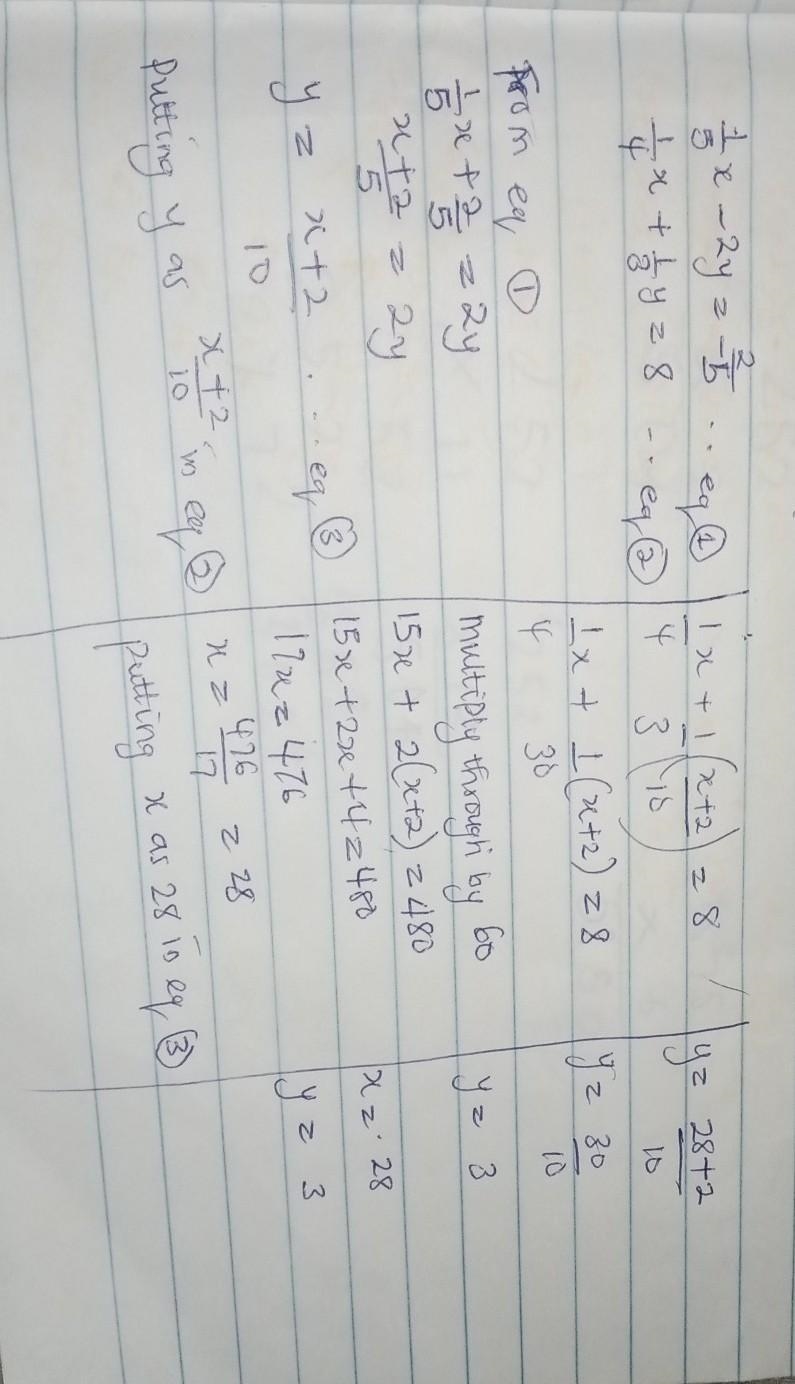 1/5 x - 2y = -2/5 .. eq ①
1/4 x + 1/3 y = 8 -.. eq ②
From eq ①
1/5 x + 2/5 = 2y
x+2/5 = 2y
y = x+2/10 . . . eq ③
Putting y as x+2/10 in eq ②
1/4 x + 1/3 (x+2/10) = 8
1/4 x + 1/30 (x+2) = 8
multiply through by 60
15x + 2(x+2) = 480
15x + 2x + 4 = 480
17x = 476
x = 476/17 = 28
Putting x as 28 in eq ③
y = 28+2/10
y = 30/10
y = 3
x = 28
y = 3